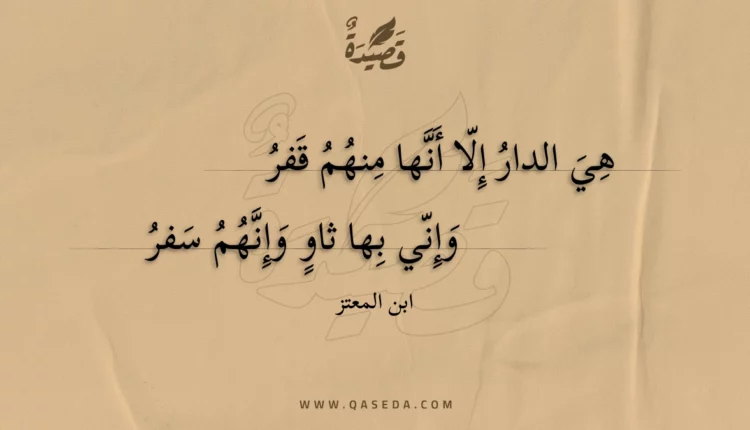 قَصِيْدَةٌ
هِيَ الدارُ إِلّا أَنَّها مِنهُمُ قَفرُ
وَإِنّي بِها ثاوٍ وَإِنَّهُمُ سَفرُ
ابن المعتز
WWW.QASEDA.COM